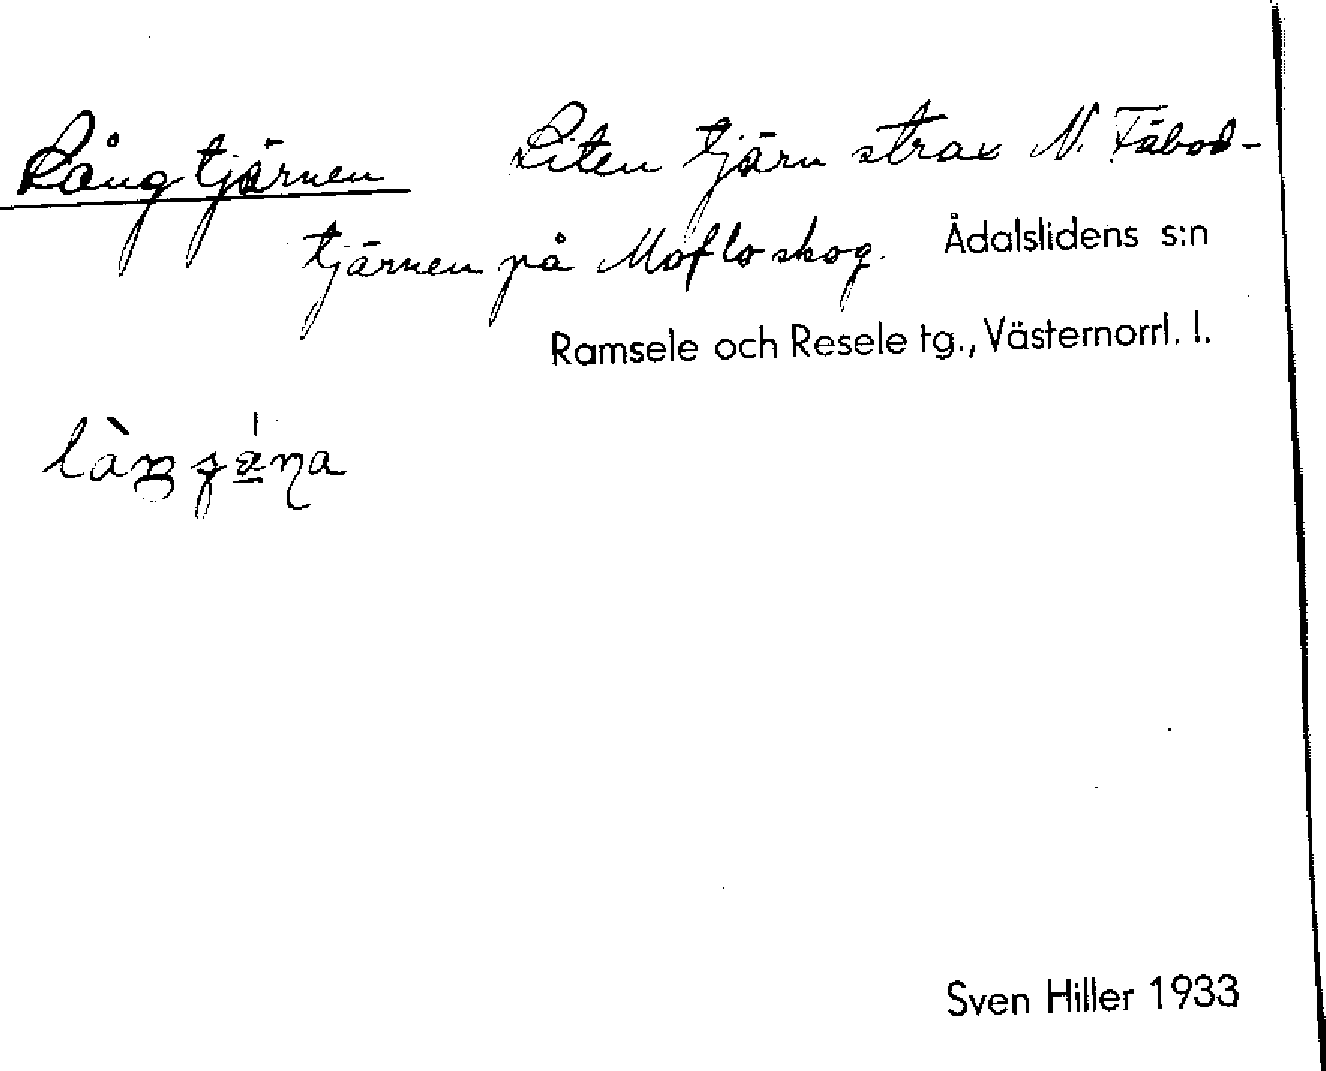 Långtjärnen Liten tjärn strax N. Fäbod-
tjärnen på Mofloskog. Ådalslidens s:n
Ramsele och Resele tg., Västernorrl. l.
Sven Hiller 1933